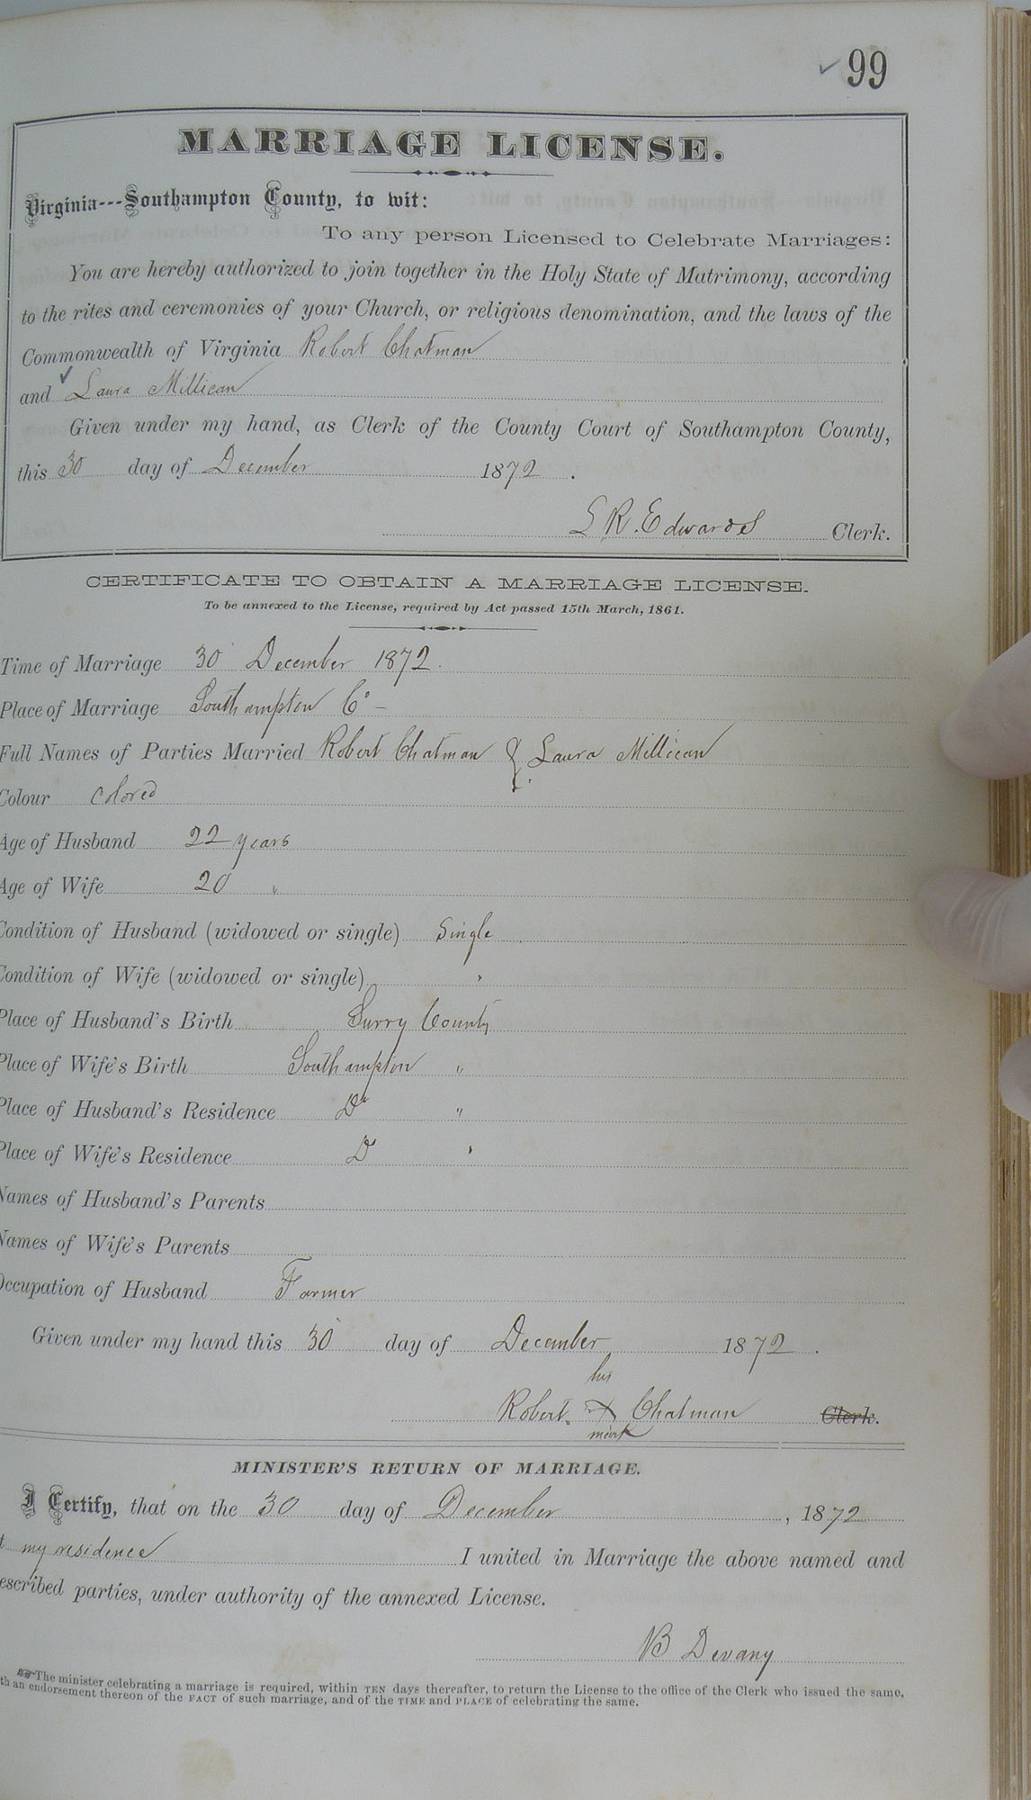 ✓ 99
MARRIAGE LICENSE.
Virginia---Southampton County, to wit:
To any person Licensed to Celebrate Marriages:
You are hereby authorized to join together in the Holy State of Matrimony, according
to the rites and ceremonies of your Church, or religious denomination, and the laws of the
Commonwealth of Virginia Robert Chatman
and ✓ Laura Millican
Given under my hand, as Clerk of the County Court of Southampton County,
this 30 day of December 1872.
L R. Edwards Clerk.
CERTIFICATE TO OBTAIN A MARRIAGE LICENSE.
To be annexed to the License, required by Act passed 15th March, 1861.
Time of Marriage 30 December 1872.
Place of Marriage Southampton Co –
Full Names of Parties Married Robert Chatman & Laura Millican
Colour Colored
Age of Husband 22 years
Age of Wife 20 "
Condition of Husband (widowed or single) Single
Condition of Wife (widowed or single) "
Place of Husband's Birth Surry County
Place of Wife's Birth Southampton "
Place of Husband's Residence Do "
Place of Wife's Residence Do "
Names of Husband's Parents
Names of Wife's Parents
Occupation of Husband Farmer
Given under my hand this 30 day of December 1872.
his
Robert X Chatman Clerk.
mark
MINISTER'S RETURN OF MARRIAGE.
I Certify, that on the 30 day of December, 1872
t my residence I united in Marriage the above named and
escribed parties, under authority of the annexed License.
B Devany
The minister celebrating a marriage is required, within TEN days thereafter, to return the License to the office of the Clerk who issued the same,
th an endorsement thereon of the FACT of such marriage, and of the TIME and PLACE of celebrating the same.